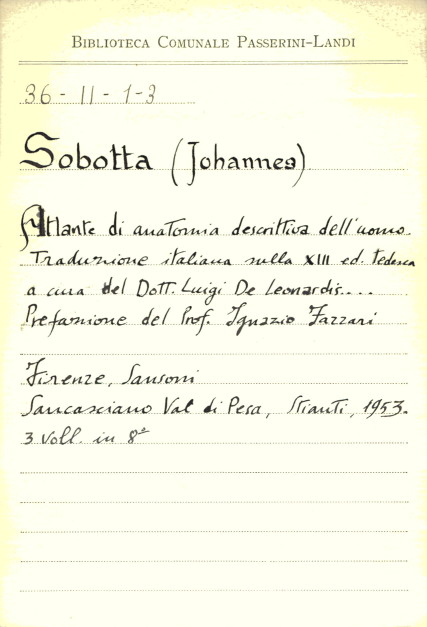 BIBLIOTECA COMUNALE PASSERINI-LANDI
36-II-1-3
Sobotta (Johannes)
Atlante di anatomia descrittiva dell'uomo.
Traduzione italiana sulla XIII ed. tedesca
a cura del Dott. Luigi De Leonardis....
Prefazione del Prof. Ignazio Fazzari
Firenze, Sansoni
Sancasciano Val di Pesa, Stianti, 1953.
3 voll. in 8°